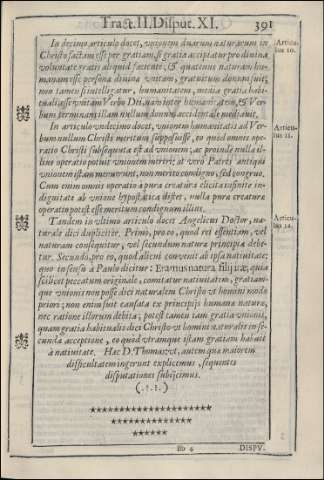 Tract. III. Disput. XI. 391
In decimo articulo docet, vnionem duarum naturarum in
Christo factam esse per gratiam, si gratia accipiatur pro diuina
voluntate gratis aliquid faciente, & quatenus naturam hu-
manam esse personæ diuinæ vnitam, gratuitum donum fuit;
non tamen si intelligatur, humanitatem, media gratia habi-
tuali esse vnitam Verbo Diui, nam inter humanitatem, & Ver-
bum terminans illam nullum donum accidentale mediauit.
Articu-
lus 10.
In articulo vndecimo docet, vnionem humanitatis ad Ver-
bum nullum Christi meritum supposuisse, eo quod omnis ope-
ratio Christi subsequuta est ad vnionem; ac proinde nulla il-
lius operatio potuit vnionem mereri; at verò Patres antiqui
vnionem istam meruerunt, non merito condigno, sed congruo.
Cum enim omnis operatio à pura creatura elicita infinite in
dignitate ab vnione hypostatica distet, nulla puræ creaturæ
operatio potest esse meritum condignum illius.
Articu-
lus 11.
Tandem in vltimo articulo docet Angelicus Doctor, na-
turale dici dupliciter. Primò, pro eo, quod rei essentiam, vel
naturam consequitur, vel secundum naturæ principia debe-
tur. Secundò, pro eo, quod alicui conuenit ab ipsa natiuitate;
quo in sensu à Paulo dicitur: Eramus natura filij iræ, quia
scilicet peccatum originale, comitatur natiuitatem, gratiam-
que vnionis non posse dici naturalem Christo vt homini modo
priori; non enim fuit causata ex principijs humanæ naturæ,
nec ratione illorum debita; potest tamen tam gratia vnionis,
quam gratia habitualis dici Christo vt homini naturalis in se-
cunda acceptione, eo quod vtramque istam gratiam habuit
à natiuitate. Hæc D. Thomas: vt, autem quæ maiorem
difficultatem ingerunt explicemus, sequentes
disputationes subijcimus.
Articu-
lus 12.
(.?.)
********************
**************
******
Bb 4 DISPV.